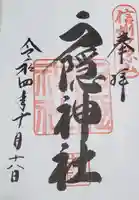 奉拝
戸隠神社
令和四年十月十六日